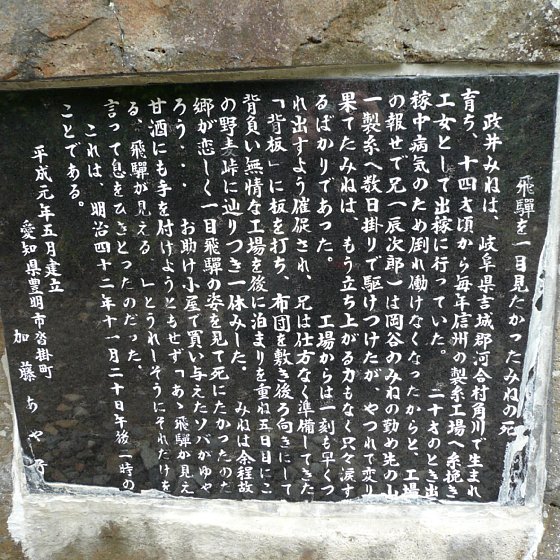 飛騨を一目見たかったみねの死
政井みねは、岐阜県吉城郡河合村角川で生まれ
育ち、十四才頃から毎年信州の製糸工場へ糸挽き
工女として出稼に行っていた。 二十才のとき出
稼中病気のため倒れ働けなくなったからと、工場
の報せで兄(辰次郎)は岡谷のみねの勤め先の山
一製糸へ数日掛りで駆けつけたが やつれて変り
果てたみねは、もう立ち上がる力もなく只々涙す
るばかりであった。 工場からは一刻も早くつ
れ出すよう催促され、兄は仕方なく準備してきた
「背板」に板を打ち、布団を敷き後ろ向きにして
背負い無情な工場を後に泊まりを重ね五日目にこ
の野麦峠に辿りつき一休みした。 みねは余程故
郷が恋しく一目飛騨の姿を見て死にたかったのだ
ろう・・・ お助け小屋で買い与えたソバがゆや
甘酒にも手を付けようともせず「あゝ飛騨が見え
る、飛騨が見える 」とうれしそうにそれだけを
言って息をひきとったのだった、
これは、明治四十二年十一月二十日午後二時の
ことである。
平成元年五月建立
愛知県豊明市沓掛町
加藤あや